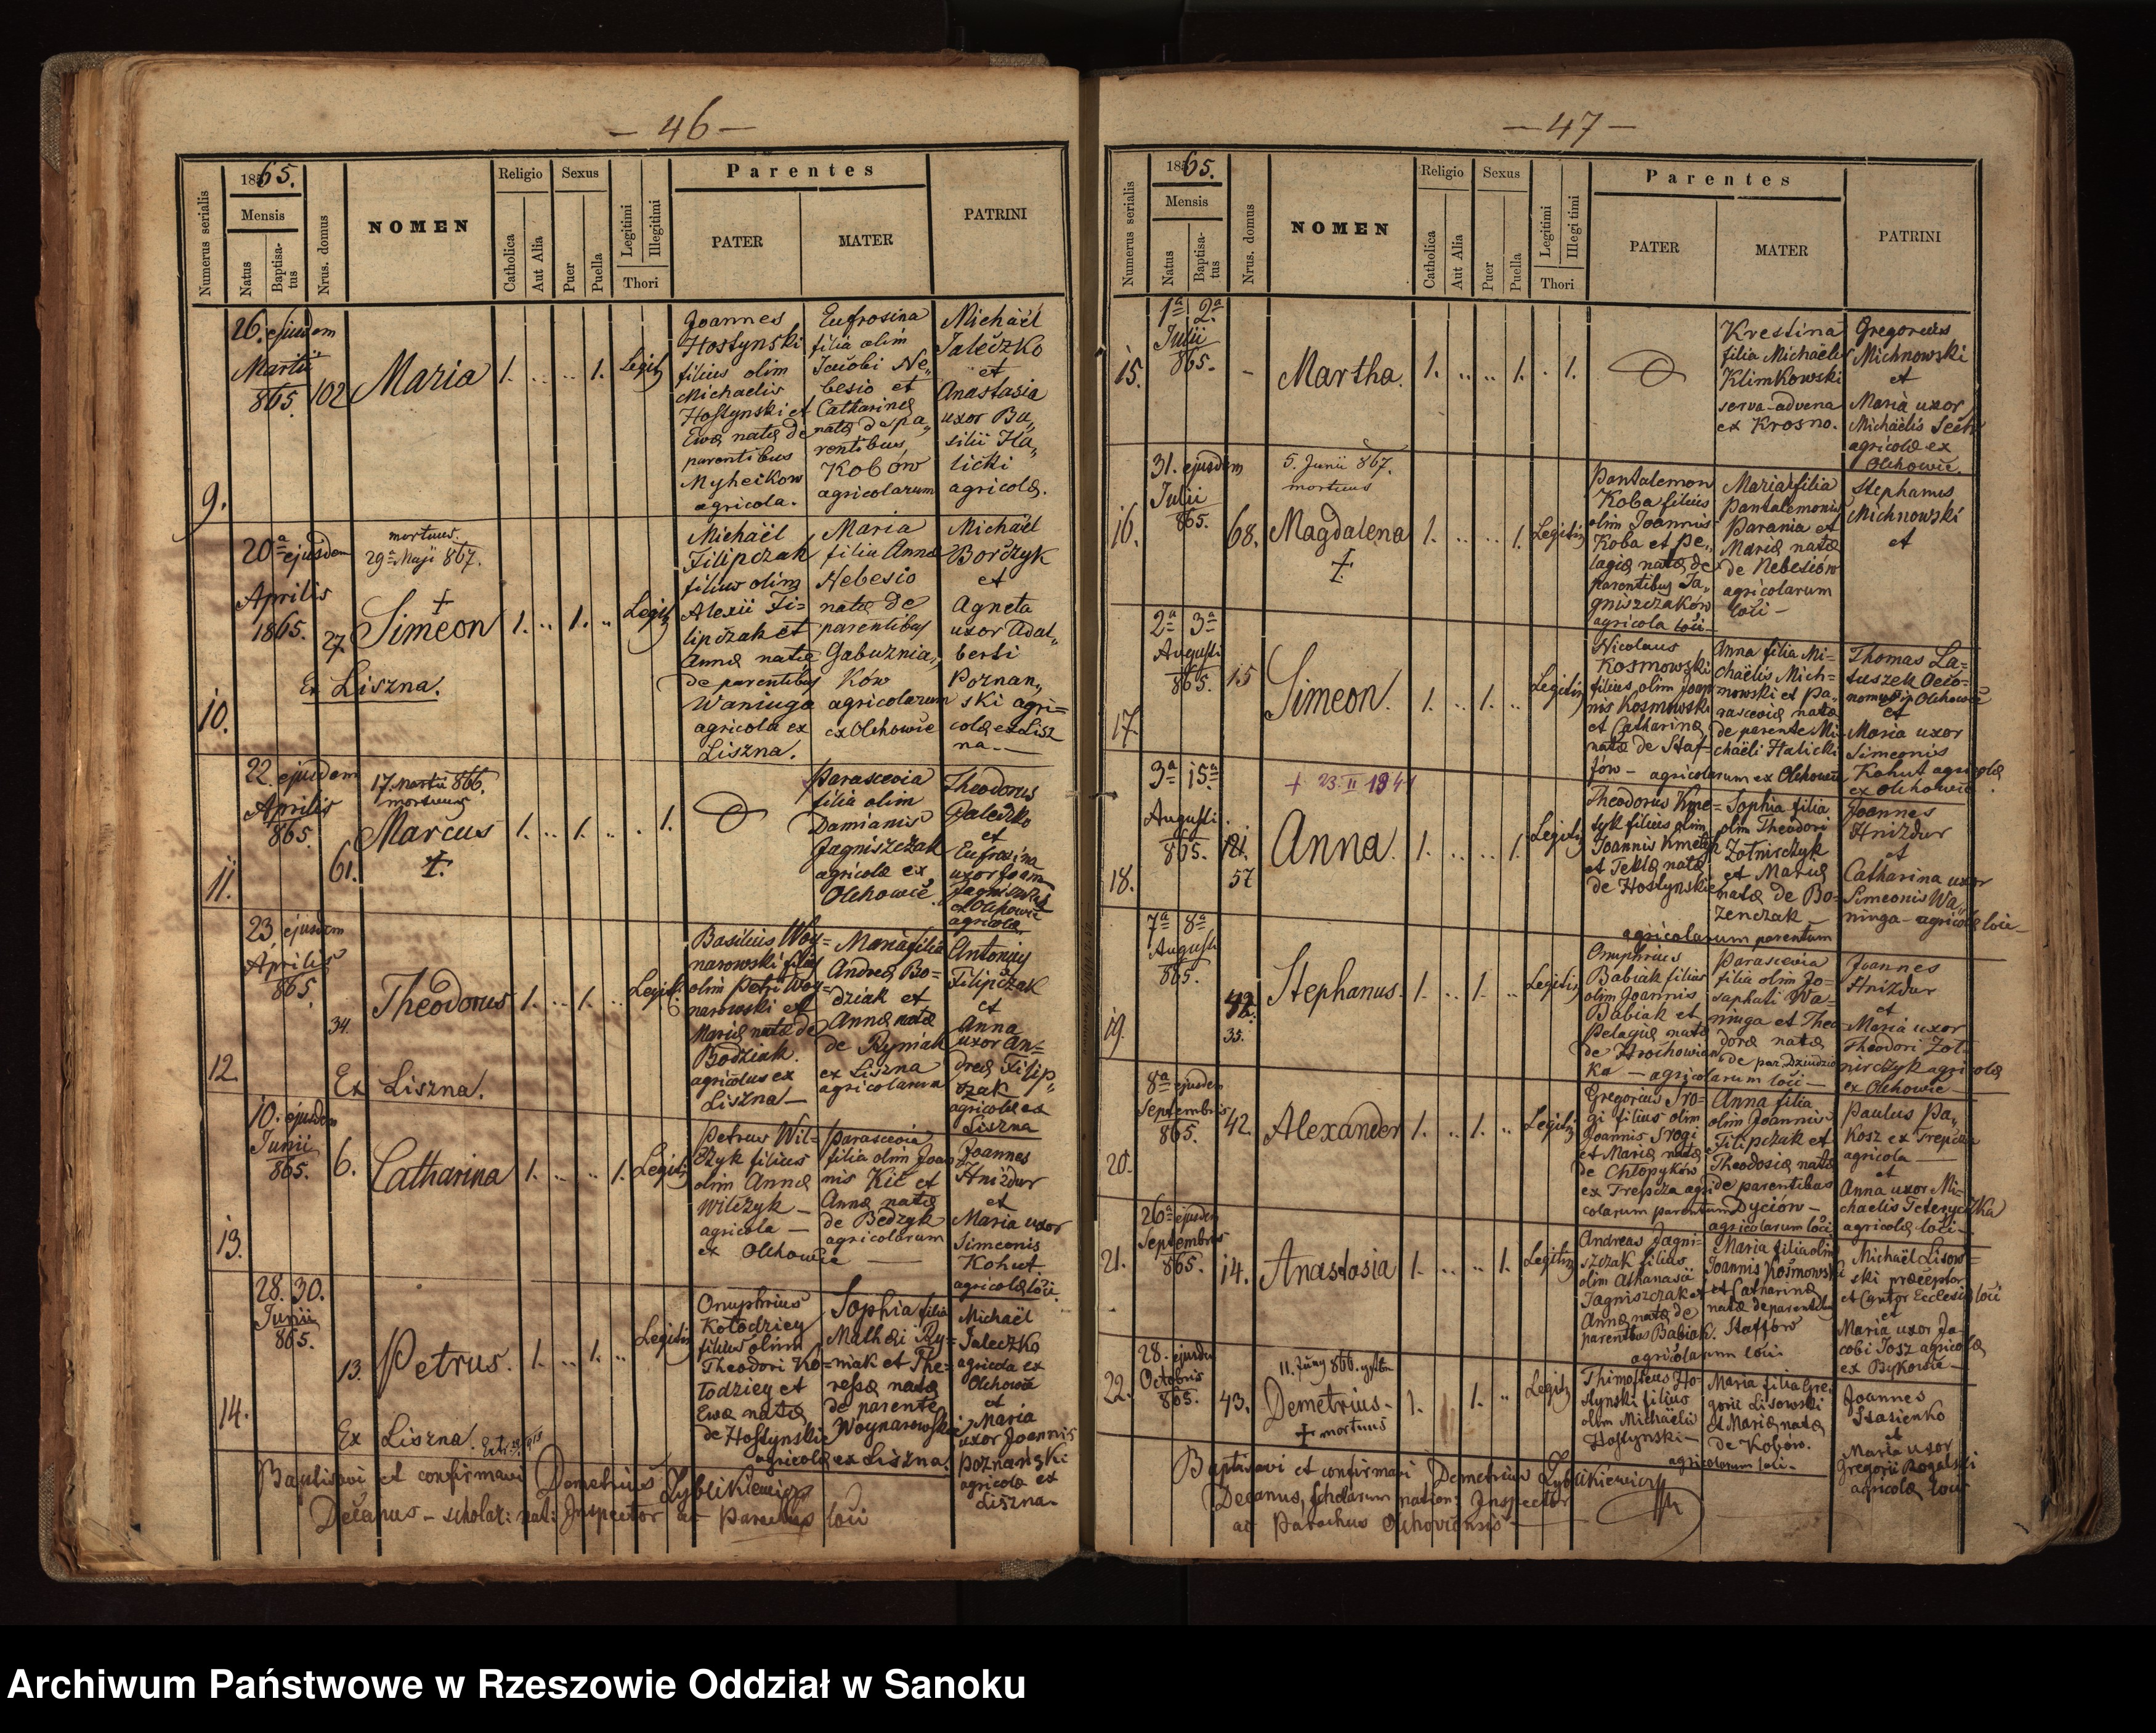 — 46 —
Numerus serialis
1865.
Mensis
Natus
Baptisa-
tus
Nrus. domus
NOMEN
Religio
Catholica
Aut Alia
Sexus
Puer
Puella
Legitimi
Illegitimi
Thori
Parentes
PATER
MATER
PATRINI
9.
26. ejusdem
Martii
865.
102
Maria
1.
1.
Legit
Joannes
Hostynski
filius olim
Michaelis
Hostynski et
Ewæ natæ de
parentibus
agricola.
Eufrosina
filia olim
Jacobi Ne„
besio et
Catharinæ
natæ de pa„
rentibus
Kobów
agricolarum
Michaël
Jaleczko
et
Anastasia
uxor Ba„
silii Ha„
licki
agricolæ.
10.
20ª ejusdem
Aprilis
1865.
27.
mortuus.
29ª Maji 867.
Simeon
Ex Liszna.
1.
1.
Legit
Michaël
Filipczak
filius olim
Alexii Fi=
lipczak et
Annæ natæ
de parentibus
Waniuga
agricola ex
Liszna.
Maria
filia Annæ
Nebesio
natæ de
parentibus
Gabuznia„
ków
agricolarum
ex Olchowie
Michaël
Borczyk
et
Agneta
uxor Adal„
berti
Poznan„
ski agri=
colæ ex Lisz
na.—
11.
22. ejusdem
Aprilis
865.
61.
17. Martii 866.
mortuus
Marcus
1.
1.
1.
Parascevia
filia olim
Damianis
Jagniszczak
agricolæ ex
Olchowie.
Theodorus
Galeczko
et
Eufrosina
uxor Joan
ex Olchowie
agricolæ
12.
23 ejusdem
Aprilis
865.
34.
Theodorus
Ex Liszna.
1.
1.
Legit
Basilius Woy=
narowski filius
olim Petri Woy=
narowski et
Mariæ natæ de
Bodziak.
agricolus ex
Liszna—
Maria filia
Andreæ Bo=
dziak et
Annæ natæ
de Rymiak
ex Liszna
agricolarum
Antonius
Filipczak
et
Anna
uxor An=
dreæ Filip„
czak
agricolæ ex
Liszna
13.
10. ejusdem
Junii
865.
6.
Catharina
1.
1.
Legit
Petrus Wil=
czyk filius
olim Annæ
Wilczyk —
agricola —
ex Olchowie
Parascevia
filia olim Joan
nis Kić et
Annæ natæ
de Bedzyk
agricolarum
Joannes
Hnizdur
et
Maria uxor
Simeonis
Kohut
agricolæ loci.
14.
28. 30.
Junii
865.
13.
Petrus.
Ex Liszna.
1.
1.
Legitim
Onuphrius
Kołodziey
filius olim
Theodori Ko=
łodziey et
Ewæ natæ
de Hostynskie
agricolæ ex Liszna.
Sophia filia
Mathæi Ry=
niak et The=
resæ natæ
de parente
Woynarowskie
Michaël
Jaleczko
agricola ex
Olchowie
et
Maria
uxor Joannis
Poznański
agricolæ ex
Liszna—
Baptisavi et confirmavi Demetrius Zyblikiewicz
Decanus — scholar: nat: Inspector ac Parochus loci
— 47 —
Numerus serialis
1865.
Mensis
Natus
Baptisa-
tus
Nrus. domus
NOMEN
Religio
Catholica
Aut Alia
Sexus
Puer
Puella
Legitimi
Illegi timi
Thori
Parentes
PATER
MATER
PATRINI
15.
1ª 2ª
Julii
865.
–
Martha.
1.
1.
1.
Krestina
filia Michaëlis
Klimkowski
serva-advena
ex Krosno.
Gregorius
Michnowski
et
Maria uxor
Michaëlis
agricolæ ex
Olchowie.
16.
31. ejusdem
Julii
865.
68.
5. Junii 867.
mortuus
Magdalena
1.
1.
Legitim
Pantalemon
Koba filius
olim Joannis
Koba et Pe„
lagiæ natæ de
parentibus Ja„
gniszczaków
agricola loci
Maria filia
Pantalemonis
Parania et
Mariæ natæ
de Nebesiów
agricolarum
loci —
Stephanus
Michnowski
et
17.
2ª 3ª
Augusti
865.
15
Simeon.
1.
1.
Legitim
Nicolaus
Kosmowski
filius olim Joan
nis Kosmowski
et Catharinæ
natæ de Staf=
fów — agricolarum ex Olchowie
Anna filia Mi=
chaëlis Mich=
nowski et Pa„
rasceviæ natæ
de parente Mi=
chaëli Halicki
Thomas La=
tuszek Oeco=
nomus ex Olchowie
et
Maria uxor
Simeonis
Kohut agricolæ
ex Olchowie.
18.
3ª 15ª
Augusti
865.
57
+ 23. II 1941
Anna.
1.
1.
Legitim
Theodorus Kme=
tyk filius olim
Joannis Kmetyk
et Teklæ natæ
de Hostynskie
Sophia filia
olim Theodori
Żołnierczyk
et Mariæ
natæ de Bo=
zenczak —
agricolarum parentum
Joannes
Hnizdur
et
Catharina uxor
Simeonis Wa„
ninga — agricolæ loci —
19.
7ª 8ª
Augusti
865.
35.
Stephanus.
1.
1.
Legitim
Onuphrius
Babiak filius
olim Joannis
Babiak et
Pelagiæ natæ
de Hrochowian
ka — agricolarum loci —
Parascevia
filia olim Jo=
saphati Wa=
ninga et Theo
doræ natæ
de par. Dziudzio
Joannes
Hnizdur
et
Maria uxor
Theodori Żoł=
nierczyk agricolæ
ex Olchowie —
20.
8ª ejusdem
Septembris
865.
42.
Alexander
1.
1.
Legitim
Gregorius Sro=
gi filius olim
Joannis Srogi
et Mariæ natæ
de Chłopyków
ex Trepcza agri
colarum parentum
Anna filia
olim Joannis
Filipczak et
Theodosiæ natæ
de parentibus
Dyciów —
agricolarum loci
Paulus Pa„
kosz ex Trepcza
agricola —
et
Anna uxor Mi=
chaelis Teterycżka
agricolæ loci —
21.
26ª ejusdem
Septembris
865.
14.
Anastasia
1.
1.
Legitim
Andreas Jagni=
szczak filius
olim Athanasii
Jagniszczak et
Annæ natæ de
parentibus Babiak.
agricolarum loci
Maria filia olim
Joannis Kosmowski
et Catharinæ
natæ de parentibus
Staffów
Michaël Lisow=
ski præceptor
et Cantor Ecclesiæ loci
et
Maria uxor Ja=
cobi Josz agricolæ
ex Bykowie —
22.
28. ejusdem
Octobris
865.
43.
11. Juny 866.
Demetrius.
+ mortuus
1.
1.
Legit
Thimotheus Ho=
stynski filius
olim Michaëlis
Hostynski —
Maria filia Gre=
gorii Lisowski
et Mariæ natæ
de Kobów.
agricolarum loci —
Joannes
Stasienko
et
Maria uxor
Gregorii Rogalski
agricolæ loci
Baptisavi et confirmavi Demetrius Zyblikiewicz
Decanus, scholarum nation: Inspector
ac Parochus Olchoviensis —
Archiwum Państwowe w Rzeszowie Oddział w Sanoku